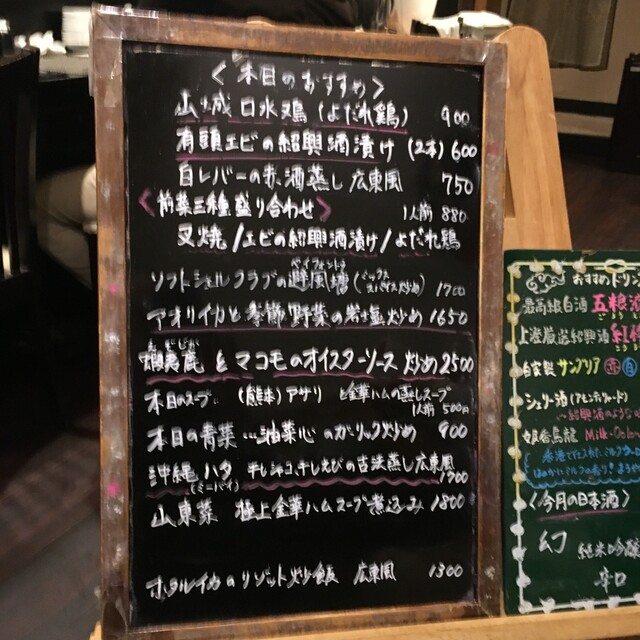 <本日のおすすめ>
山城 口水鶏 (よだれ鶏) 900
有頭エビの紹興酒漬け (2本) 600
白レバーの赤酒蒸し 広東風 750
<前菜三種盛り合わせ> 1人前 880
叉焼/エビの紹興酒漬け/よだれ鶏
ソフトシェルクラブの避風塘 1700
アオリイカと季節野菜の岩塩炒め 1650
蝦夷鹿とマコモのオイスターソース炒め 2500
本日のスープ... (熊本)アサリと金華ハムの蒸しスープ
1人前 500円
本日の青菜...油菜心のガーリック炒め 900
沖縄ハタ 干し、干しえびの古法蒸し広東風
(ミーバイ) 1900
山東菜 極上金華ハムスープ煮込み 1800
ホタルイカのリゾット炒飯 広東風 1300
おすすめドリン
最高級白酒 五粮液
上澄厳選紹興酒
自家製 サングリア 赤 白
シェリー酒
〜紹興酒のような
<今月の日本酒>
幻 純米吟醸
辛口